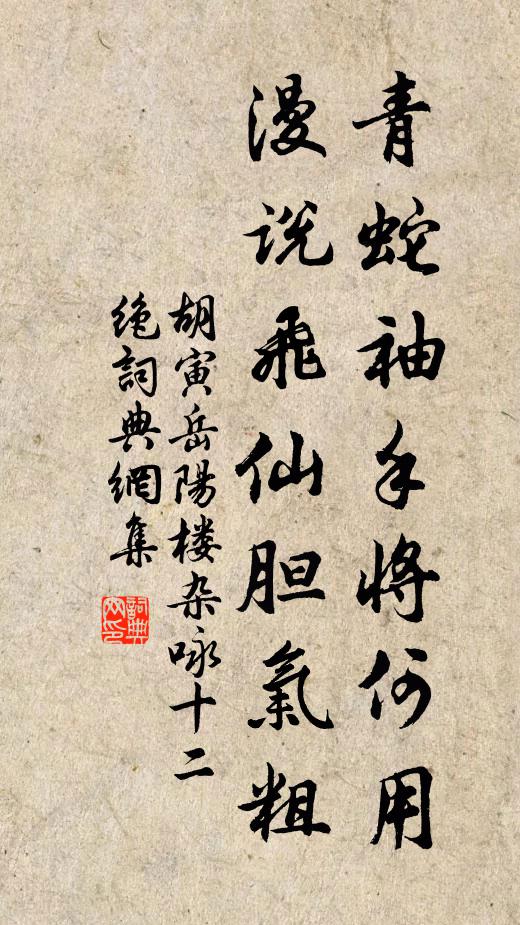 青蛇袖手将何用
漫说飛仙胆氣粗
胡寅岳陽楼杂咏十二
绝詞典網集
詞典
网印